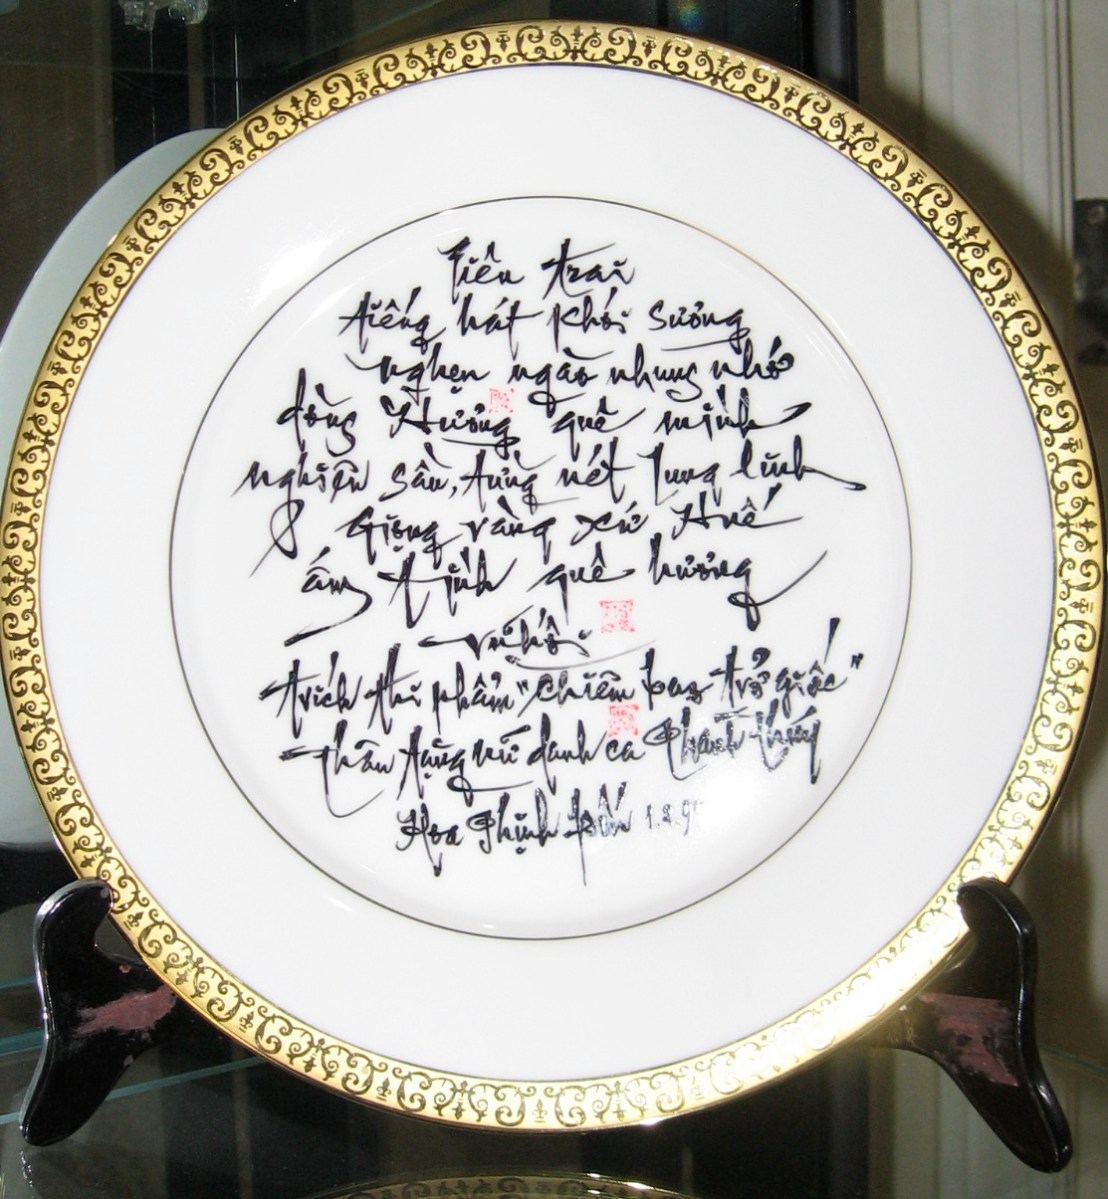 Liêu trai
tiếng hát khói sương
nghẹn ngào nhung nhớ
dòng Hương quê mình
nghiện sầu, từng nét lung linh
Giọng vàng xứ Huế
ấm tình quê hương
vũ hối
trích thi phẩm "chiêm bao trở giấc"
Thân tặng nữ danh ca Thanh Thúy
Hoa Thịnh Đốn 1.8.9